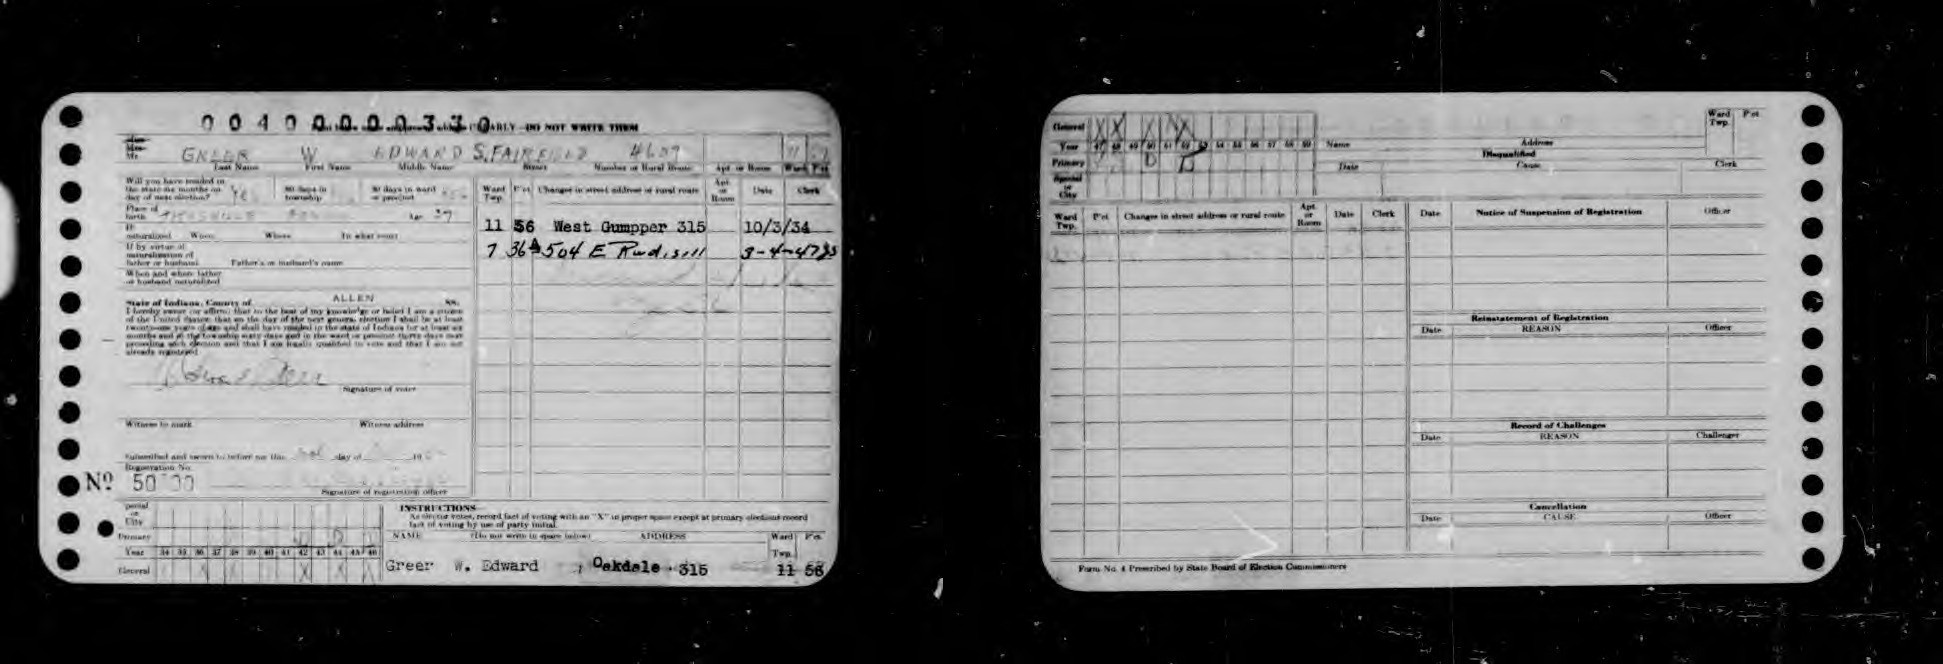 0040000330
CLEARLY—DO NOT WRITE THEM
GREER W EDWARD S. FAIRFIELD 4639
Last Name First Name Middle Name Street Number or Rural Route Apt. or Room Ward Pct.
Will you have resided in the state six months on day of next election? Yes 60 days in township 30 days in ward or precinct
Place of birth Age 39
If naturalized When Where In what court
If by virtue of naturalization of father or husband Father's or husband's name
When and where father or husband naturalized
State of Indiana, County of ALLEN SS.
I hereby swear (or affirm) that to the best of my knowledge or belief I am a citizen
of the United States; that on the day of the next general election I shall be at least
twenty-one years of age and shall have resided in the state of Indiana for at least six
months and in the township sixty days and in the ward or precinct thirty days next
preceding such election and that I am legally qualified to vote and that I am not
already registered
Signature of voter
Witness to mark Witness address
Subscribed and sworn to before me this day of 19
Registration No.
No
Signature of registration officer
Ward Twp. Pct. Changes in street address or rural route Apt. or Room Date Clerk
11 56 West Gumpper 315 10/3/34
7 36 504 E Rudisill 3-4-47
Special or City
Primary D
Year 34 35 36 37 38 39 40 41 42 43 44 45 46
General X X X X
INSTRUCTIONS
As elector votes, record fact of voting with an "X" in proper space except at primary elections record
fact of voting by use of party initial.
NAME (Do not write in space below) ADDRESS Ward Twp. Pct.
Greer W. Edward , Oakdale 315 11 56
General X X X X
Year 47 48 49 50 51 52 53 54 55 56 57 58 59
Primary D D
Special or City
Name Address Ward Twp. Pct.
Disqualified
Date Cause Clerk
Ward Twp. Pct. Changes in street address or rural route Apt. or Room Date Clerk
Date Notice of Suspension of Registration Officer
Reinstatement of Registration
Date REASON Officer
Record of Challenges
Date REASON Challenger
Cancellation
Date CAUSE Officer
Form No. 4 Prescribed by State Board of Election Commissioners